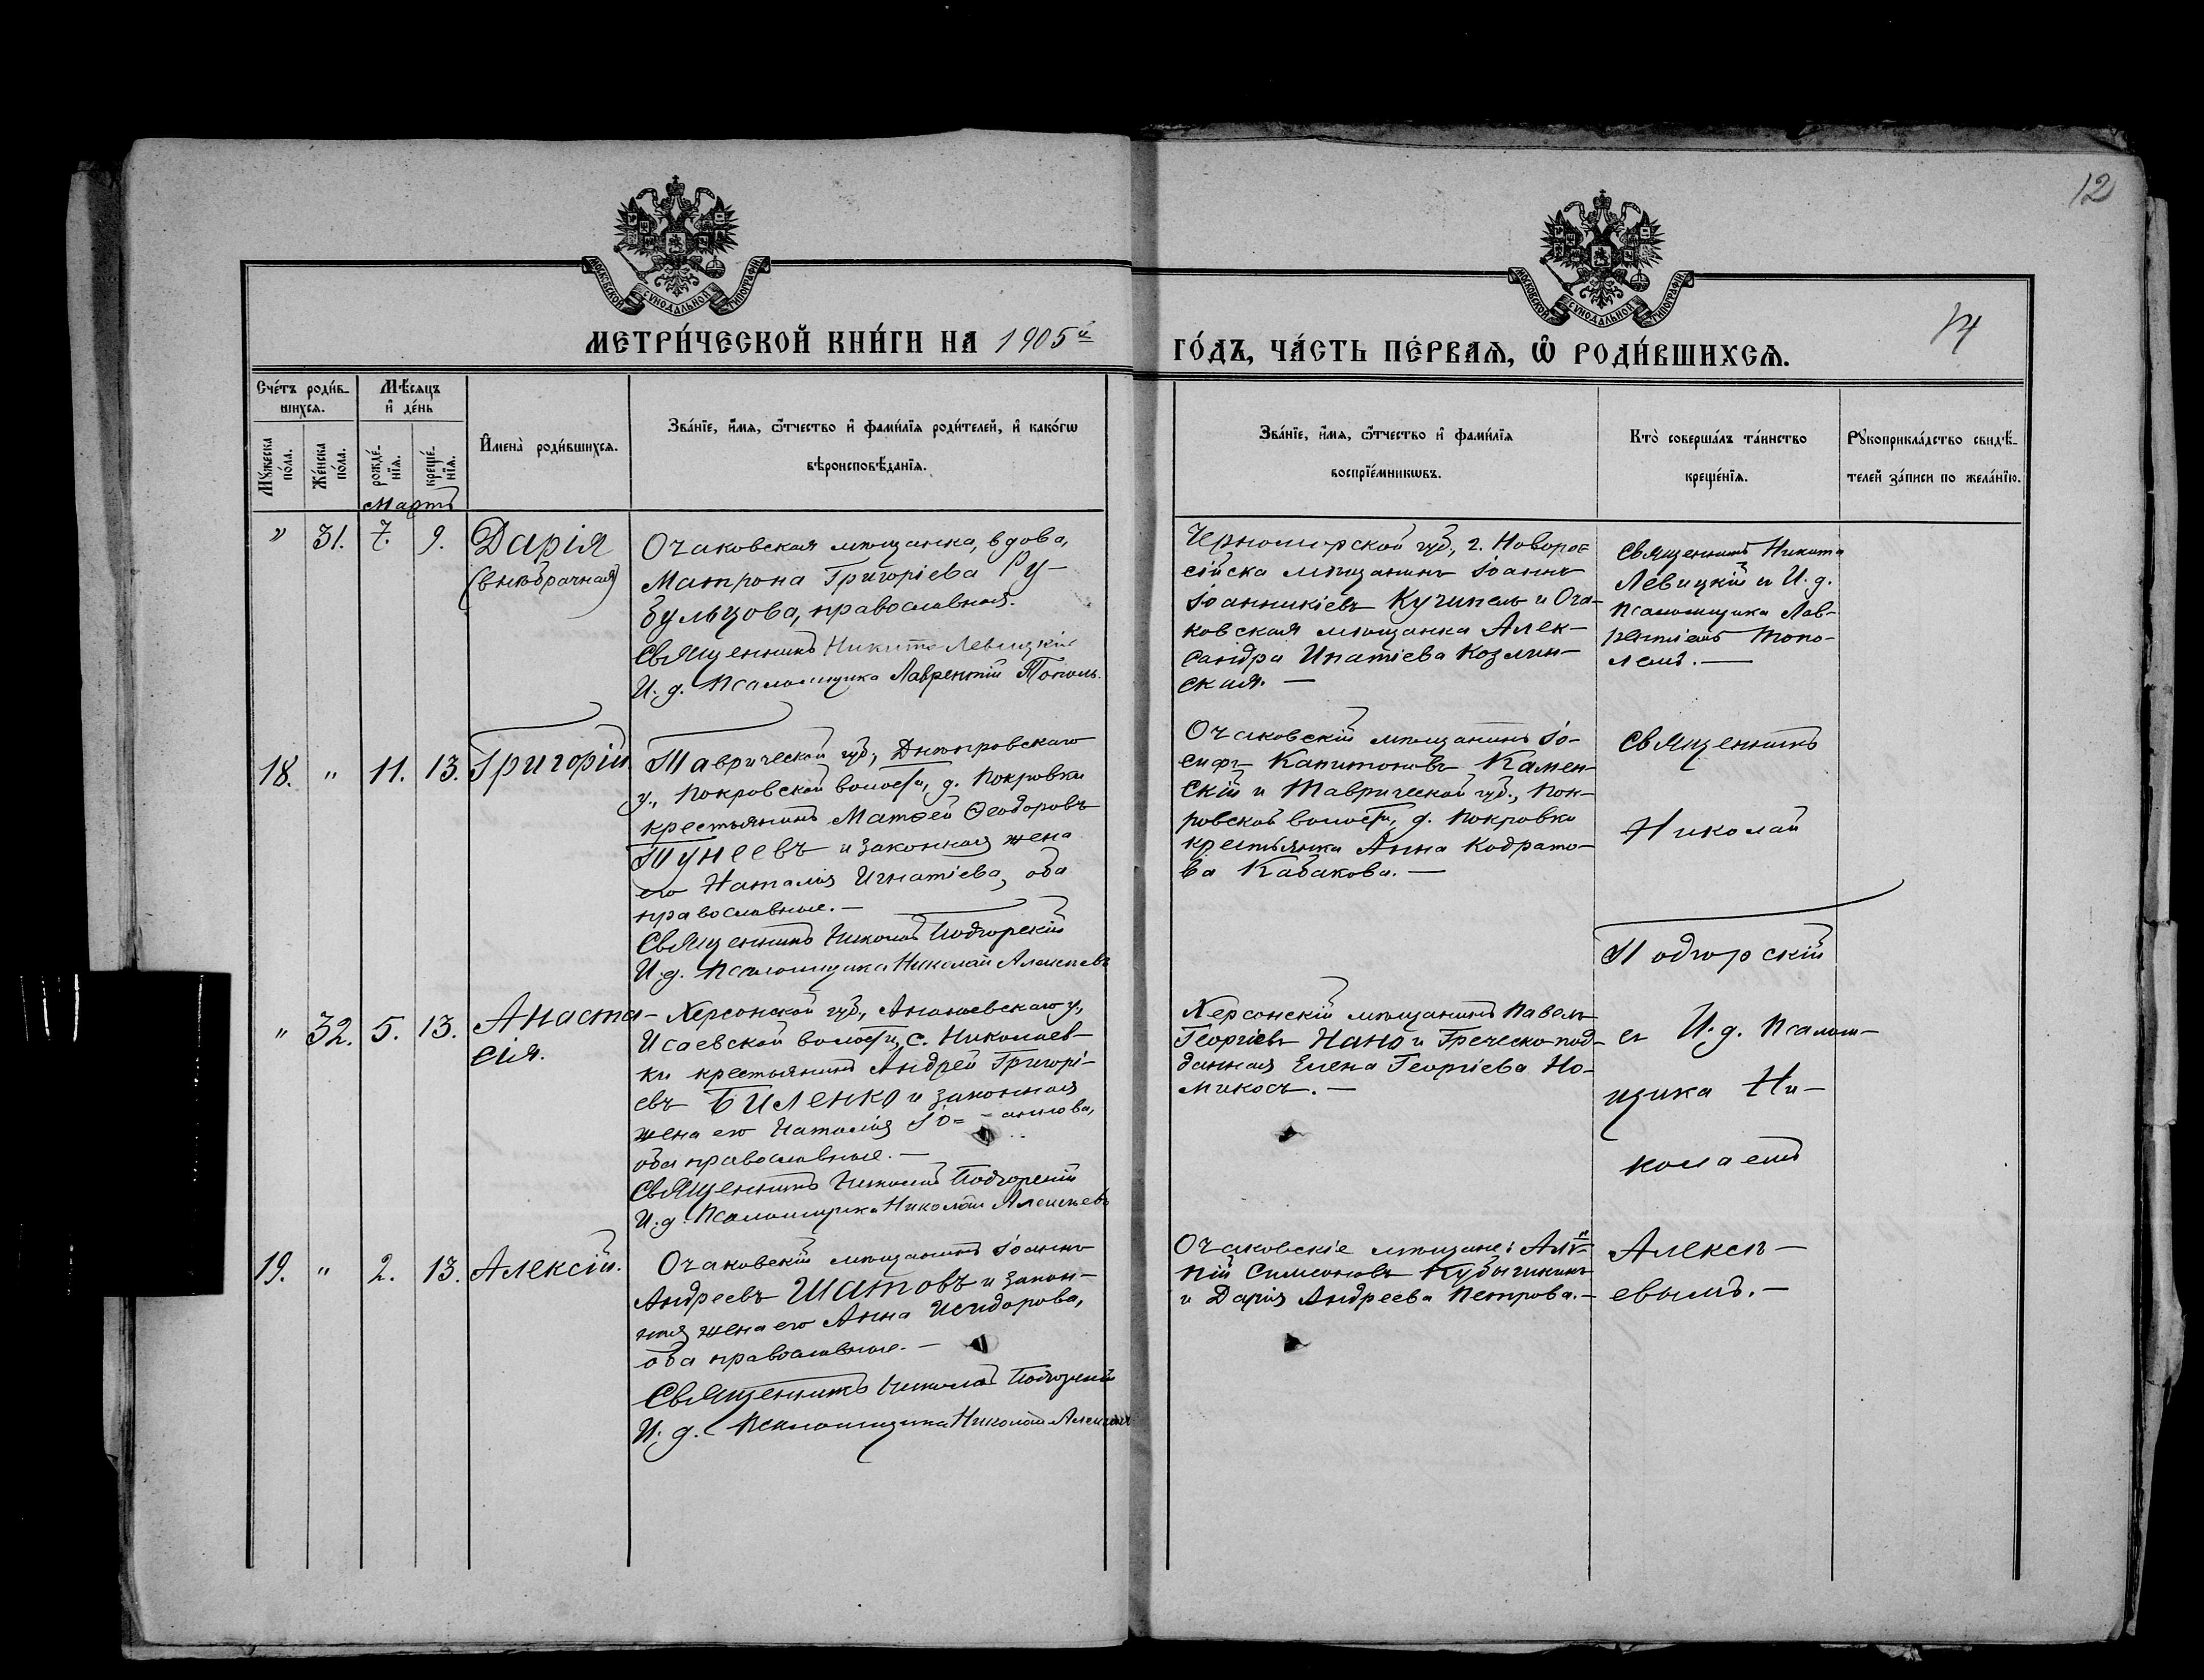 12
МОСКОВСКОЙ СУНОДАЛЬНОЙ ТИПОГРАФІИ
МОСКОВСКОЙ СУНОДАЛЬНОЙ ТИПОГРАФІИ
МЕТРИ́ЧЕСКОЙ КНИ́ГИ НА 1905й
ГО́ДЪ, ЧА́СТЬ ПЕ́РВАѦ, Ѡ РОДИ́ВШИХСѦ.
Сче́тъ роди́в-
шихсѧ.
Мѣ́сяцъ
и де́нь
Мꙋжеска по́ла.
Же́нска по́ла.
рожде́-
нїѧ.
креще́-
нїѧ.
И҆мена̀ роди́вшихсѧ.
Зва́нїе, и҆́мѧ, ѻ҆́тчество и҆ фами́лїѧ роди́телей, и҆ како́гѡ
вѣроисповѣ́данїѧ.
Зва́нїе, и҆́мѧ, ѻ҆́тчество и҆ фами́лїѧ
воспрїе́мникѡвъ.
Кто̀ соверша́лъ та́инство
креще́нїѧ.
Рꙋкоприкла́дство свидѣ́-
телей за́писи по жела́нїю.
Мартъ
" 31. 7. 9. Дарія
(внѣбрачная)
Очаковская мѣщанка, вдова,
Матрона Григоріева Ру-
бульцова, православная.
Священникъ Никита Левицкій
И. д. Псаломщика Лаврентій Тополь.
Черноморской губ., г. Новорос-
сійска мѣщанинъ Іоаннъ
Іоанникіевъ Кучинель и Оча-
ковская мѣщанка Алек-
сандра Ипатіева Козлин-
ская. —
Священникъ Никита
Левицкій съ И. д.
Псаломщика Лав-
рентіемъ Топо-
лемъ. —
18. " 11. 13. Григорій
Таврической губ., Днѣпровскаго
у., Покровской волости, д. Покровки
крестьянинъ Матѳей Ѳеодоровъ
Тунеевъ и законная жена
его Наталія Игнатіева, оба
православные. —
Священникъ Николай Подгорскій
И. д. Псаломщика Николай Алексѣевъ
Очаковскій мѣщанинъ Іо-
сифъ Капитоновъ Камен-
скій и Таврической губ., Пок-
ровской волости, д. Покровки
крестьянка Анна Кодрато-
ва Кабакова. —
Священникъ
Николай
Подгорскій
" 32. 5. 13. Анаста-
сія.
Херсонской губ., Ананьевскаго у.,
Исаевской волости, с. Николаев-
ки крестьянинъ Андрей Григорі-
евъ Биленко и законная
жена его Наталія Іо= =аннова,
оба православные. —
Священникъ Николай Подгорскій
И. д. Псаломщика Николай Алексѣевъ
Херсонскій мѣщанинъ Павелъ
Георгіевъ Нано и Греческо-под-
данная Елена Георгіева Но-
микосъ. —
съ И. д. Псалом-
щика Ни-
колаемъ
19. " 2. 13. Алексій.
Очаковскій мѣщанинъ Іоаннъ
Андреевъ Шатовъ и закон-
ная жена его Анна Исидорова,
оба православные. —
Священникъ Николай Подгорскій
И. д. Псаломщика Николай Алексѣевъ
Очаковскіе мѣщане:
пій Симеоновъ
и Дарія Андреева Петрова. —
Алексѣ-
евымъ. —